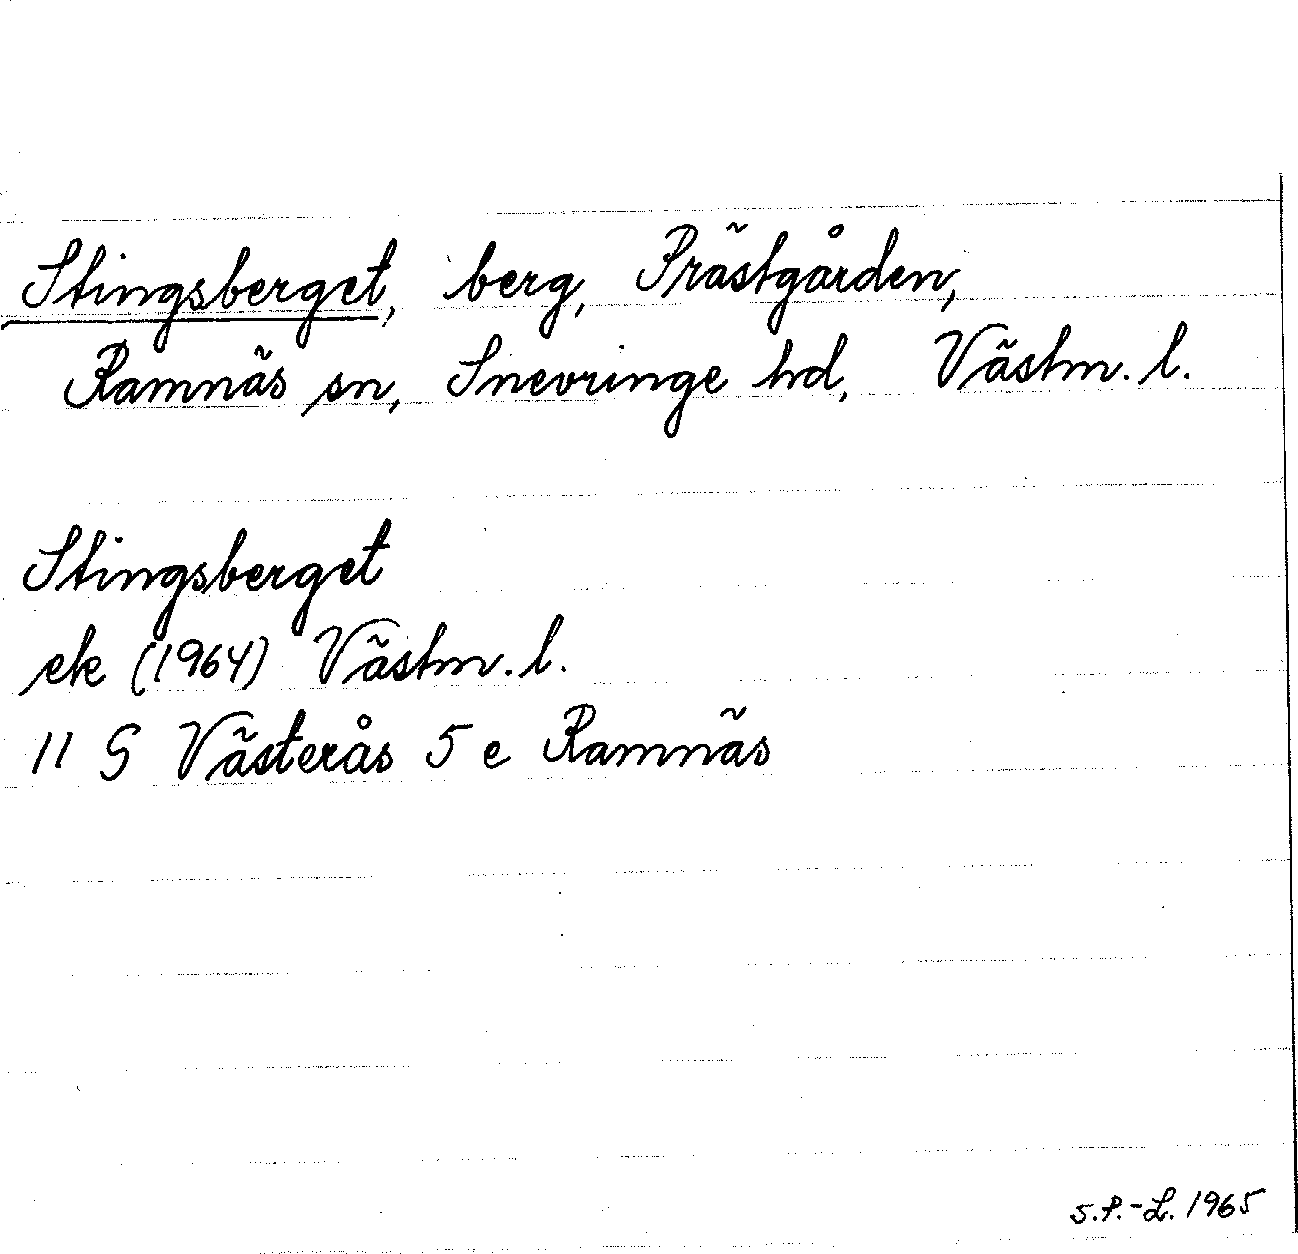 Stingsberget, berg, Prästgården,
Ramnäs sn, Snevringe hd, Västm. l.
Stingsberget
ek (1964) Västm. l.
11 G Västerås 5 e Ramnäs
S.P.-L. 1965